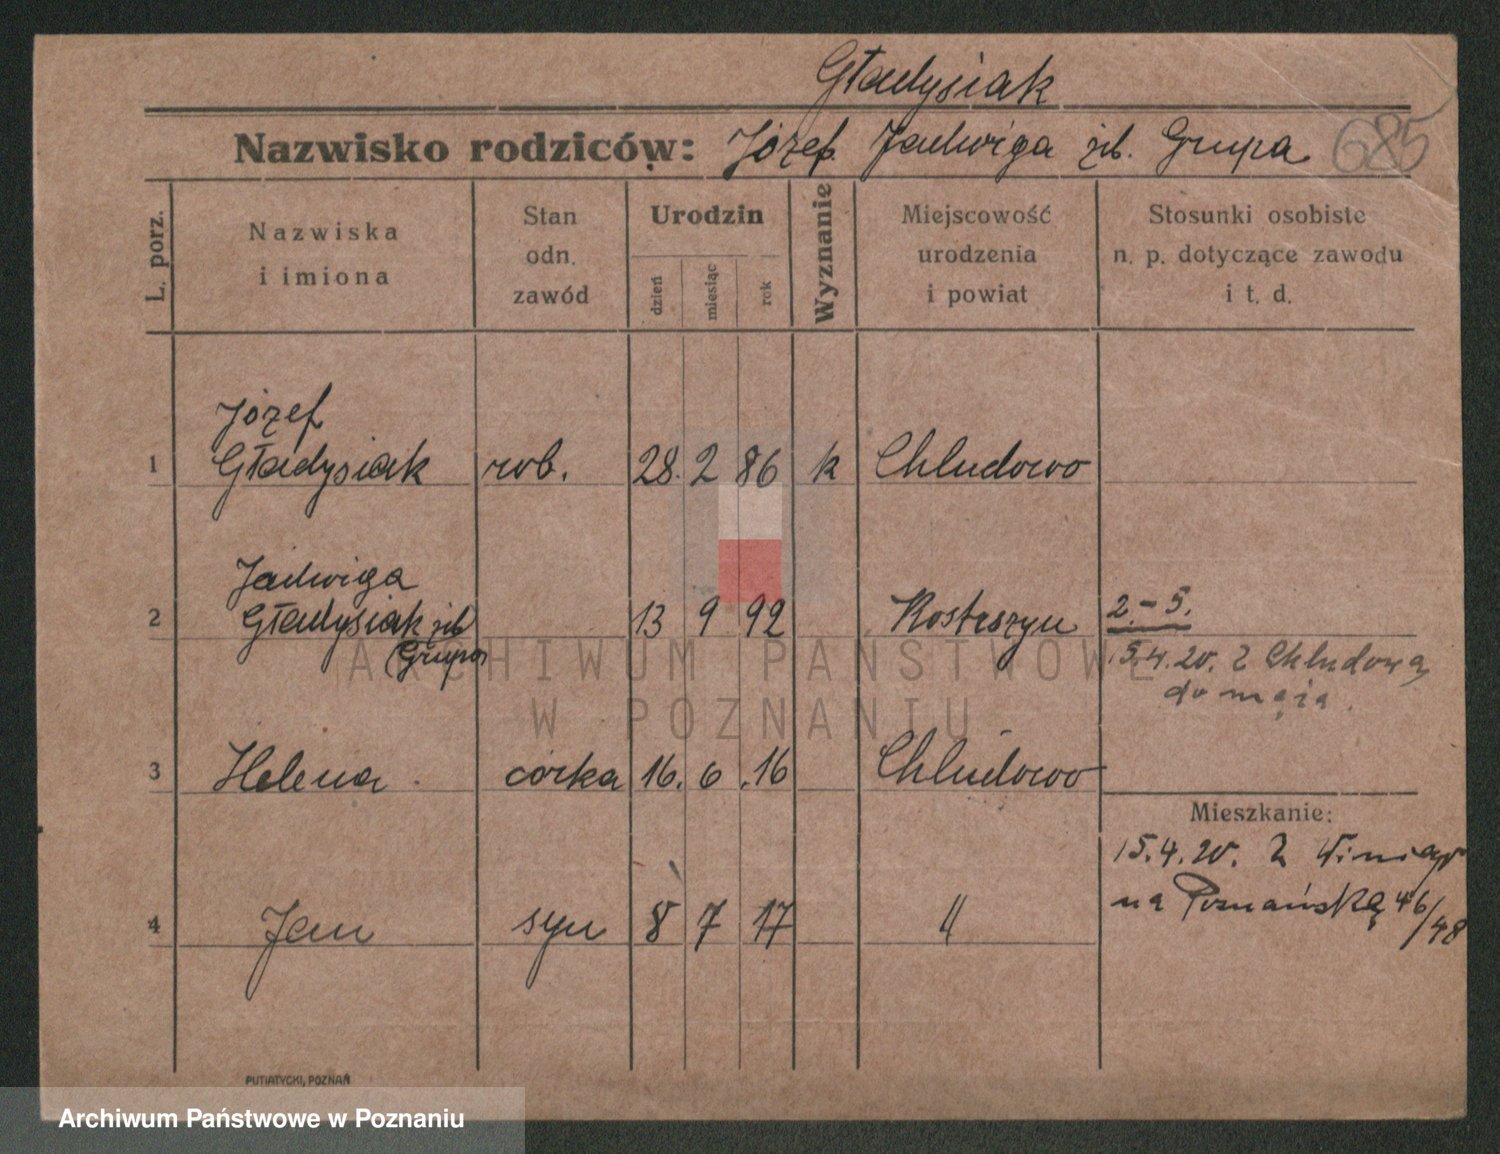 Gładysiak
Nazwisko rodziców: Józef. Jadwiga zb. Grupa 685
L. porz.
Nazwiska
i imiona
Stan
odn.
zawód
Urodzin
dzień
miesiąc
rok
Wyznanie
Miejscowość
urodzenia
i powiat
Stosunki osobiste
n. p. dotyczące zawodu
i t. d.
Józef
1 Gładysiak rob. 28. 2 86 k Chludowo
Jadwiga
2 Gładysiak zb 13 9 92 Kostrszyn 2.-5.
(Grupa)
15.4.20. Z Chludowa
do męża.
3 Helena córka 16. 6 .16 Chludowo
Mieszkanie:
15.4.20. Z Winiar
na Poznańską 46/48
4 Jan syn 8 7 17 "
PUTIATYCKI, POZNAŃ
ARCHIWUM PAŃSTWOWE
W POZNANIU
Archiwum Państwowe w Poznaniu